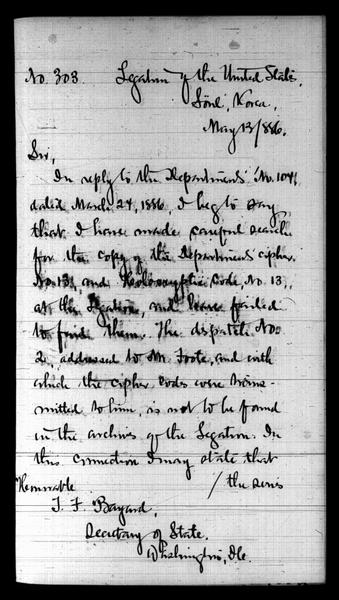 No. 303. Legation of the United States,
Söul, Korea,
May 13/1886.
Sir,
In reply to the Department's No. 104,
dated March 24, 1886, I beg to say
that I have made careful search
for the copy of the Department cipher
No. 13, and Holocryptic Code, No. 13,
at the Legation, and have failed
to find them. The dispatch No.
2, addressed to Mr. Foote, and with
which the cipher codes were trans-
mitted to him, is not to be found
in the archives of the Legation. In
this connection I may state that
/ the
Honorable
T. F. Bayard,
Secretary of State,
Washington,